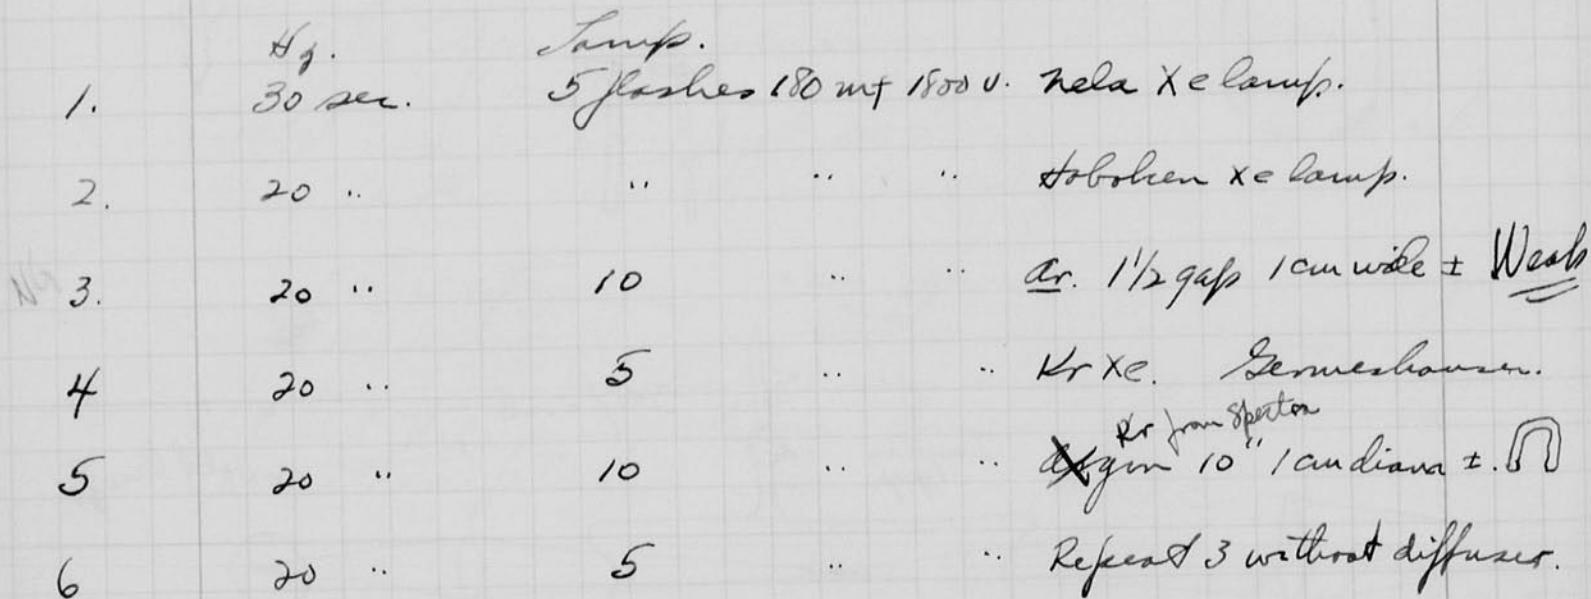 Hg. Lamp.
1. 30 sec. 5 flashes 180 mf 1800 v. Nela Xe lamp.
2. 20 " " " " Hoboken Xe lamp.
3. 20 " 10 " " Ar. 1 1/2 gap 1 cm wide ± Weak
4 20 " 5 " " Kr Xe. Germeshausen.
Kr from Spectra
5 20 " 10 " " Argon 10" 1 cm diam ±.
6 20 " 5 " " Repeat 3 without diffuser.